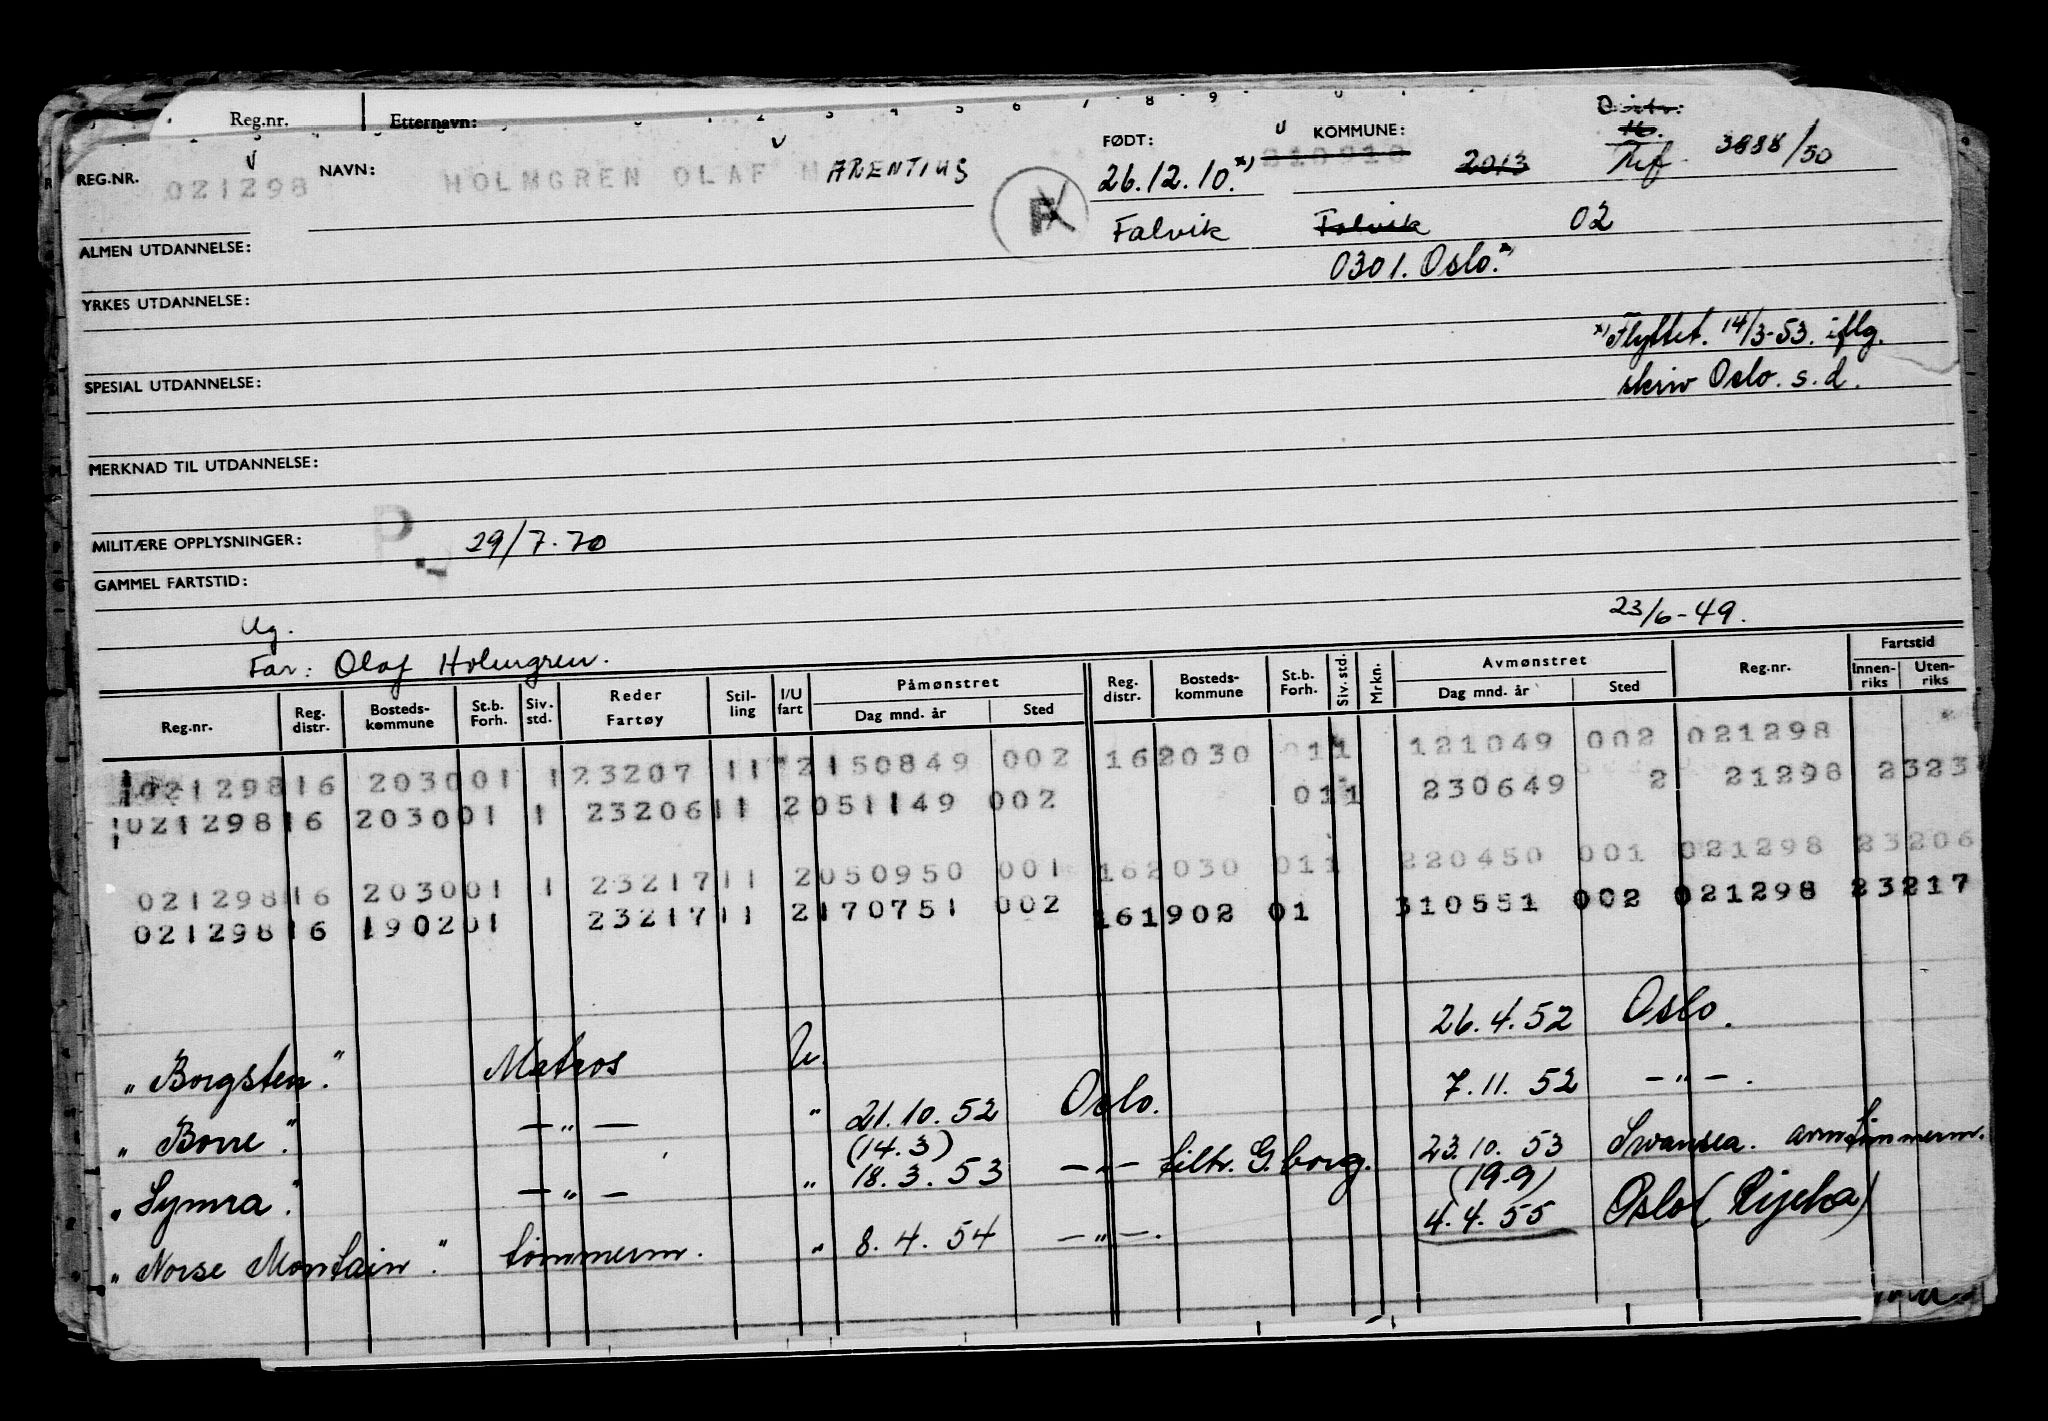 Reg.nr. Etternavn:
REG.NR. 021298 NAVN: HOLMGREN OLAF ARENTIUS FØDT: 26.12.10.x) KOMMUNE: 2013 Tlf. 3888/50
Falvik Falvik 02
0301. Oslo.x)
ALMEN UTDANNELSE:
YRKES UTDANNELSE:
x) Flyttet. 14/3-53. iflg.
skriv Oslo. s.d.
SPESIAL UTDANNELSE:
MERKNAD TIL UTDANNELSE:
MILITÆRE OPPLYSNINGER: P. 29/7.70
GAMMEL FARTSTID:
Ug. 23/6-49.
Far: Olaf Holmgren.
Reg.nr. Reg. distr. Bosteds-kommune St.b. Forh. Siv. std. Reder Fartøy Stil-ling I/U fart Påmønstret Dag mnd. år Sted Reg. distr. Bosteds-kommune St.b. Forh. Siv. std. Mrkn. Avmønstret Dag mnd. år Sted Reg.nr. Fartstid Innen-riks Uten-riks
021298 16 2030 01 1 23207 11 2 150849 002 16 2030 01 1 121049 002 021298
021298 16 2030 01 1 23206 11 2 051149 002 01 1 230649 2 21298 2323
021298 16 2030 01 1 23217 11 2 050950 001 16 2030 01 1 220450 001 021298 23206
021298 16 1902 01 23217 11 2 170751 002 16 1902 01 310551 002 021298 23217
"Borgsten." Matros U. 26.4.52 Oslo.
"Borre". —"— " 21.10.52 Oslo. 7.11.52 —"—.
(14.3)
"Lymra". —"— " 18.3.53 —"— tiltr. G.borg. 23.10.53 Swansea. avm tømmerm.
(19.9)
"Norse Montain". tømmerm. " 8.4.54 —"—. 4.4.55 Oslo (Rijeka)